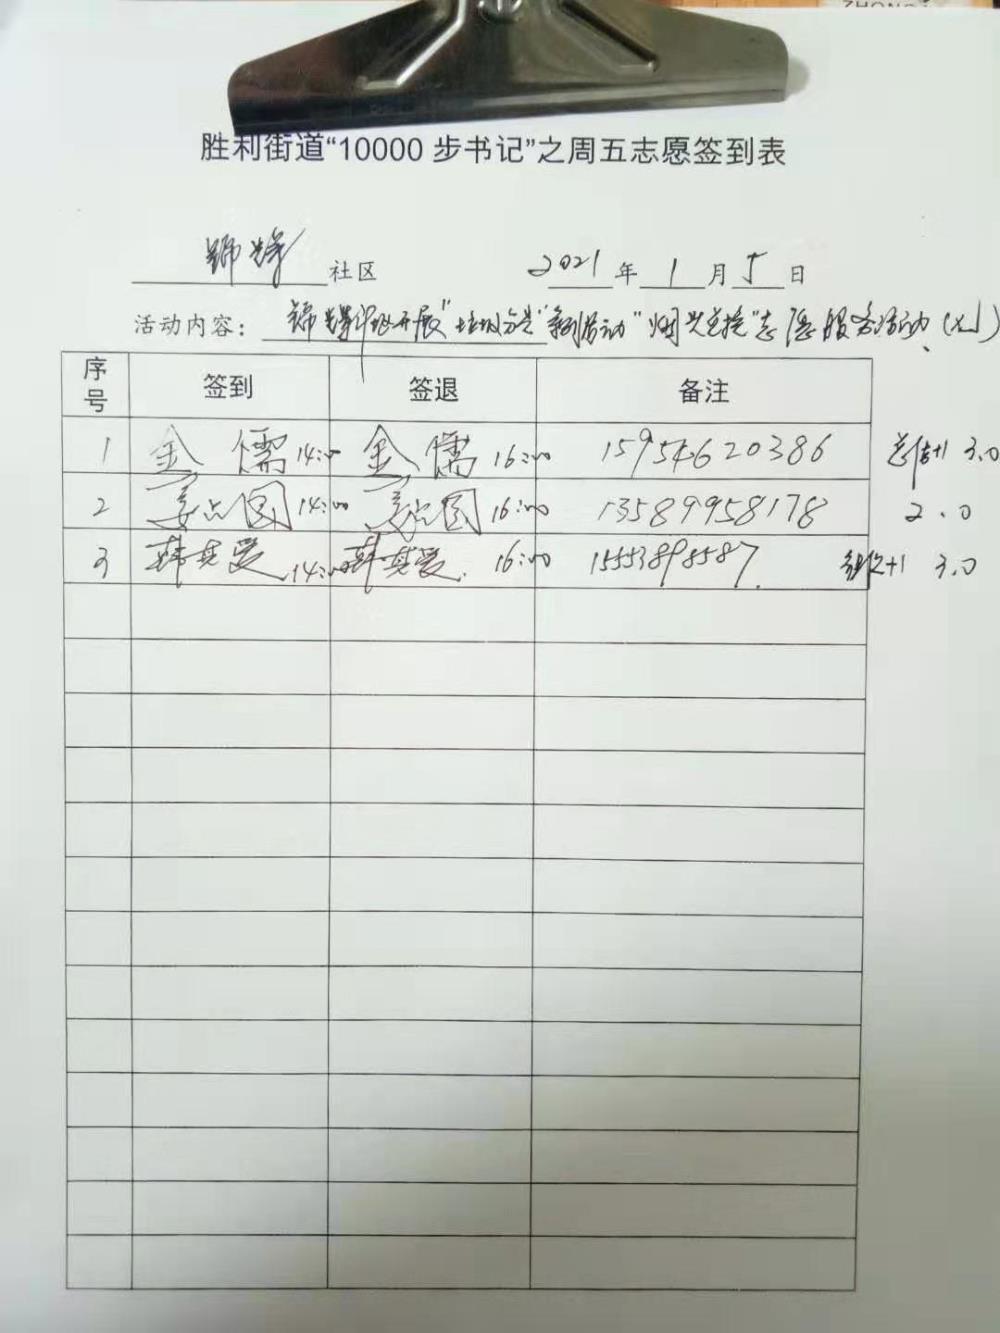 ZHONG
胜利街道“10000 步书记”之周五志愿签到表
锦辉 社区 2021 年 1 月 5 日
活动内容：锦辉社区开展“垃圾分类 志愿服务活动
序号 签到 签退 备注
1 金儒 14:00 金儒 16:00 15954620386 总结+1 3.0
2 14:00 16:00 13589958178 2.0
3 韩其爱 14:00 韩其爱 16:00 15553898587 +1 3.0